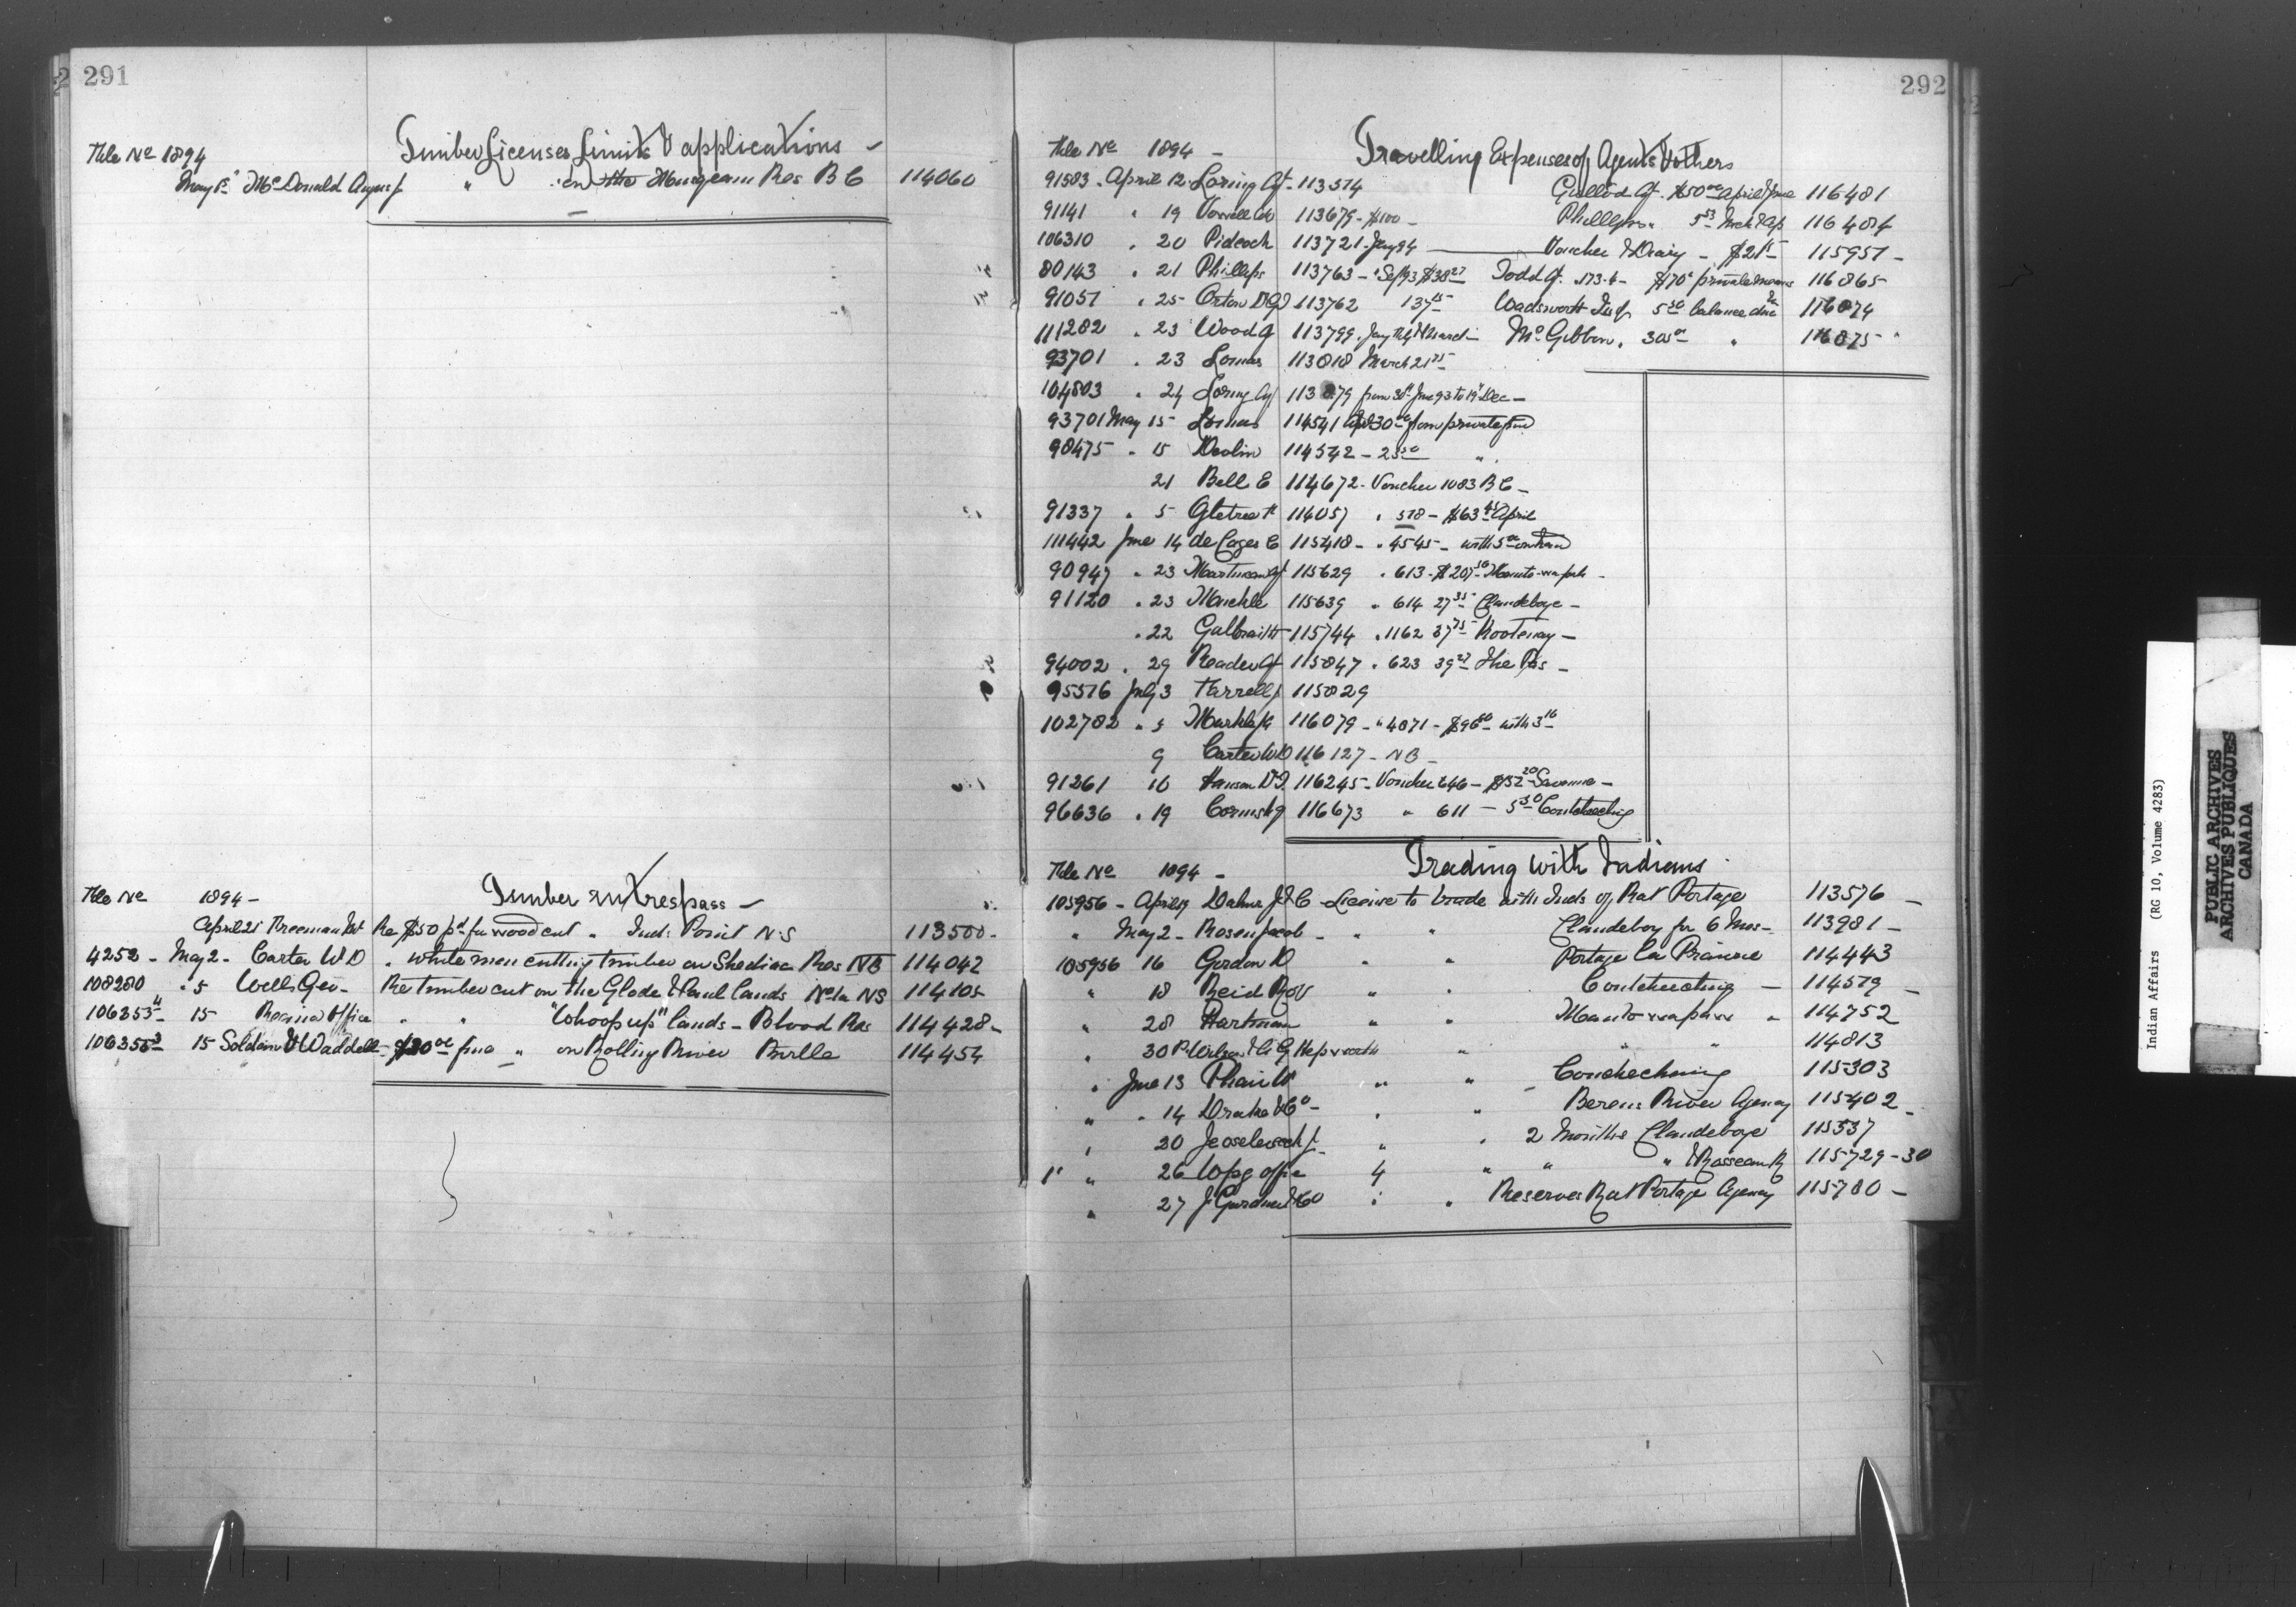 291
Timber Licenses Limits & applications -
File No 1894
May 5 McDonald Angus " on the Musqueam Res B C 114060
File No 1894 -
Timber in trespass -
April 21 Freeman Re $50 pd for wood cut " Inds Point N S 113500 -
4252 - May 2 - Carter W D " white men cutting timber on Shediac Res NB 114042
108280 " 5 Wells Geo - Re timber cut on the Glode & Paul lands No 1a NS 114105
106355 - 15 Regina Office " " "Whoop up" lands - Blood Res 114428 -
106355 15 Soldan & Waddell - $20 00 fine " on Rolling River Birtle 114454
292
File No 1894 -
Travelling Expenses of Agents & others
91583 - April 12 Loring Agt - 113514
91141 " 19 Vowell AW 113679 - $100 -
106310 " 20 Pidcock 113721 - Jany 94
80143 " 21 Phillips 113763 - Sept 93 $38 27
91051 " 25 Orton 113762 137 45
111282 " 23 Wood 113799 - Jany Feby & March -
93701 " 23 Lomas 113818 March 21 75
104803 " 24 Loring Agt 113879 from 30th June 93 to 19th Dec -
93701 May 15 Lomas 114541 Apl 30 from private fund
98475 " 15 Devlin 114542 - 25 50 "
21 Bell E 114672 - Voucher 1083 B C -
91337 " 5 114057 " 578 - $63 45 April
111442 June 14 de Cazes C 115418 - " 4545 -
90947 " 23 Martineau Agt 115629 " 613 - $207 50 Manito-wa-pah -
91120 " 23 Muckle 115639 " 614 27 35 Clandeboye -
" 22 Galbraith 115744 " 1162 37 75 Kootenay -
94002 " 29 Reader Agt 115847 " 623 39 27 The Pas -
95516 July 3 Farrell J 115829
102782 " 5 Markle JG 116079 - " 4871 - $96 60 with 3 16
9 Carter W D 116127 - N B -
91261 10 Hanson 116245 - Voucher 646 - $52 20 Savanne -
96636 " 19 Cornish 116673 " 611 - 5 50 Coutcheeching
Guillod Agt $50 00 April & June 116481
Phillips " 5 53 Mch & Ap 116484
Voucher & Diary - $21 15 115951 -
Todd Agt 173.4 - $70 private means 116865
Wadsworth Insp 5 20 balance due 116874
McGibbon " 305 00 " 116875
File No 1894 -
Trading with Indians
105956 - April 19 J & C - License to trade with Inds of Rat Portage 113576 -
" May 2 - Rosen Jacob - " " Clandeboy for 6 Mos - 113981 -
105956 16 Gordon D " " Portage la Prairie 114443
" 18 Reid " " Coutcheeching - 114579 -
" 28 Hartman " " Manitowapaw " 114752
" 30 P Wilson & G Hepworth " " " 114813
" June 13 Phair W " " Coucheching 115303
" " 14 Drake & Co - " " Berens River Agency 115402 -
" 20 J " " 2 Months Clandeboye 115537
" 26 Wpg office 4 " " " & Rosseau R 115729 - 30
" 27 J Gardner & Co " " Reserves Rat Portage Agency 115780 -
Indian Affairs (RG 10, Volume 4283)
PUBLIC ARCHIVES
ARCHIVES PUBLIQUES
CANADA